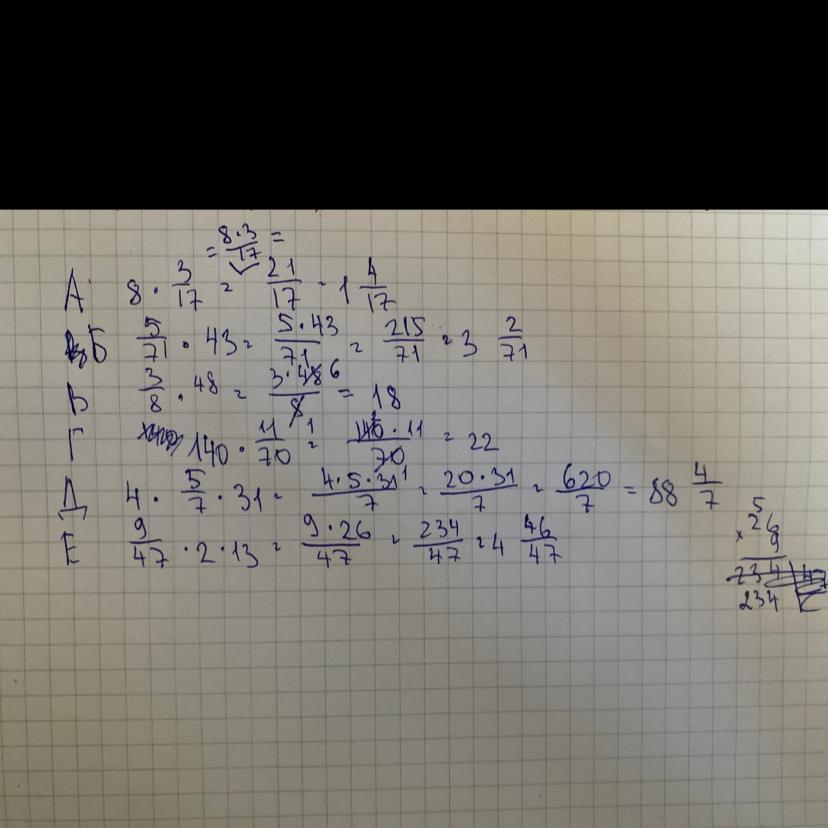 = 8·3/17 =
А 8 · 3/17 = 21/17 = 1 4/17
Б 5/71 · 43 = 5·43/71 = 215/71 = 3 2/71
В 3/8 · 48 = 3·48 6/8 = 18
Г 140 · 11/70 1 = 140 2 · 11/70 = 22
Д 4 · 5/7 · 31 = 4·5·31/7 = 20·31/7 = 620/7 = 88 4/7
Е 9/47 · 2 · 13 = 9·26/47 = 234/47 = 4 46/47
5
26
× 9
234
234